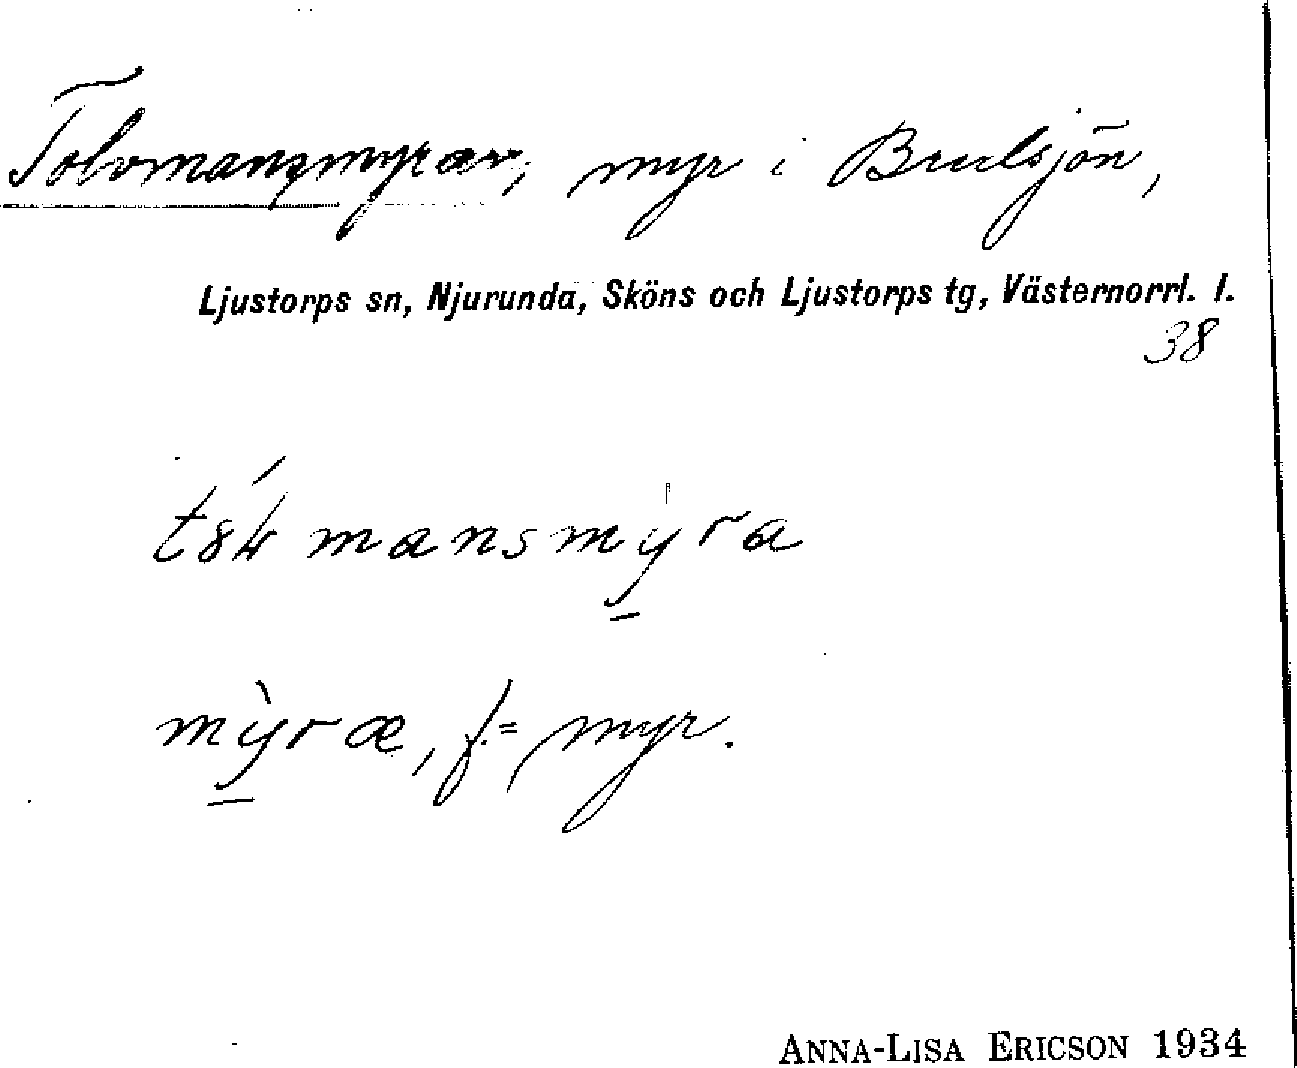 Tolvmansmyran, myr i Brulsjön,
Ljustorps sn, Njurunda, Sköns och Ljustorps tg, Västernorrl. l.
38
mansmyra
mỳræ, f.= myr.
ANNA-LISA ERICSON 1934